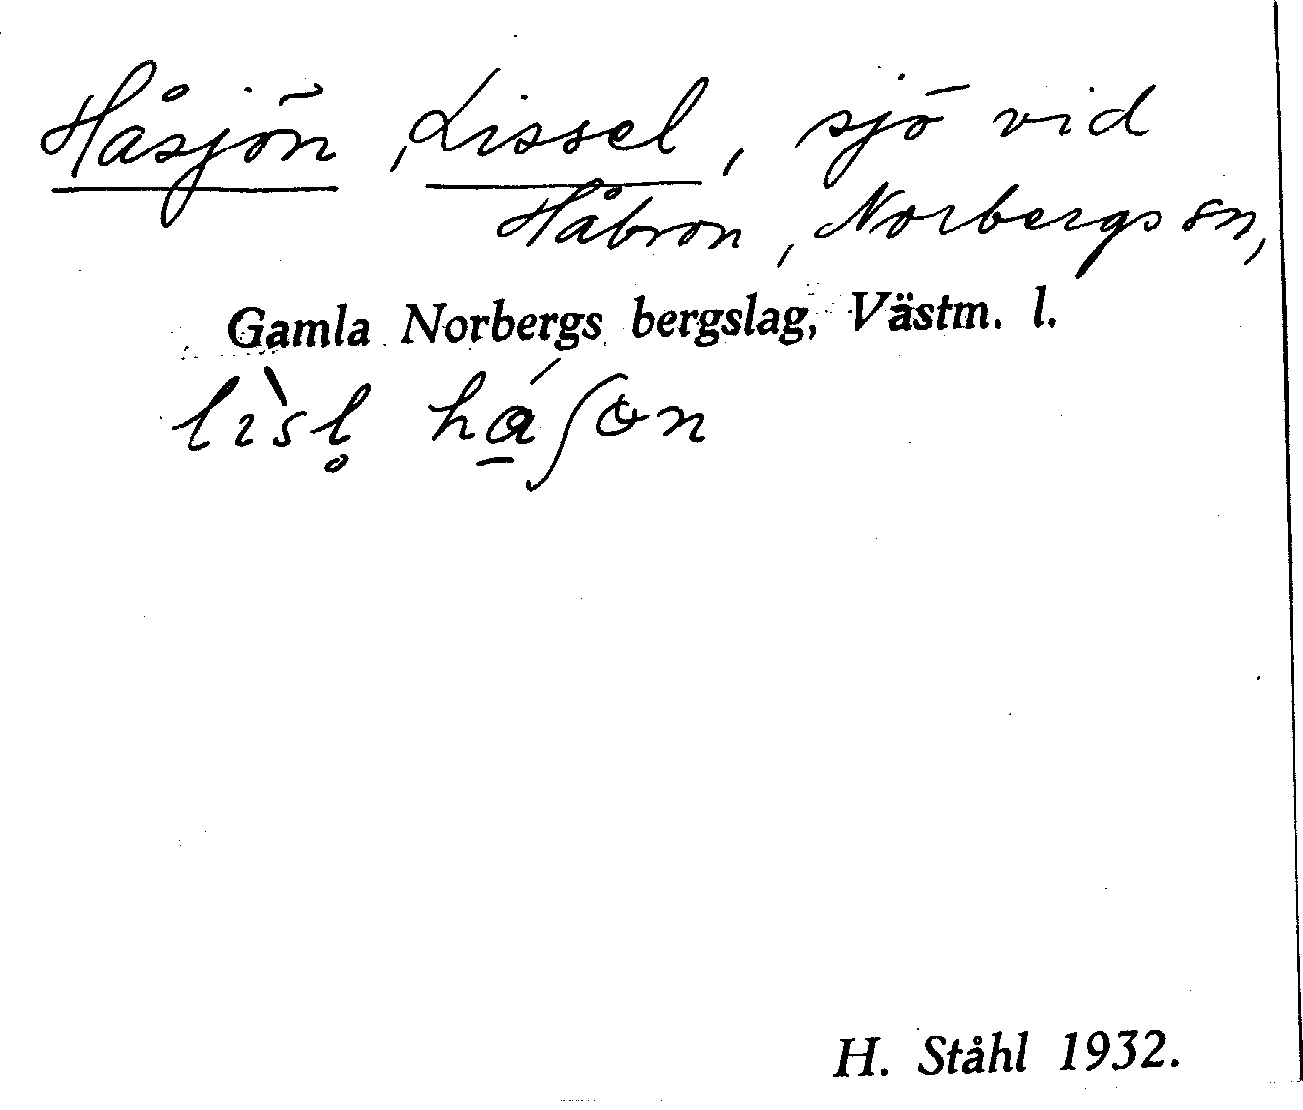 Håsjön, Lissel, sjö vid
Håbron, Norbergs sn,
Gamla Norbergs bergslag, Västm. l.
lɪ̀sl̥ hά̱ʃɵn
H. Ståhl 1932.